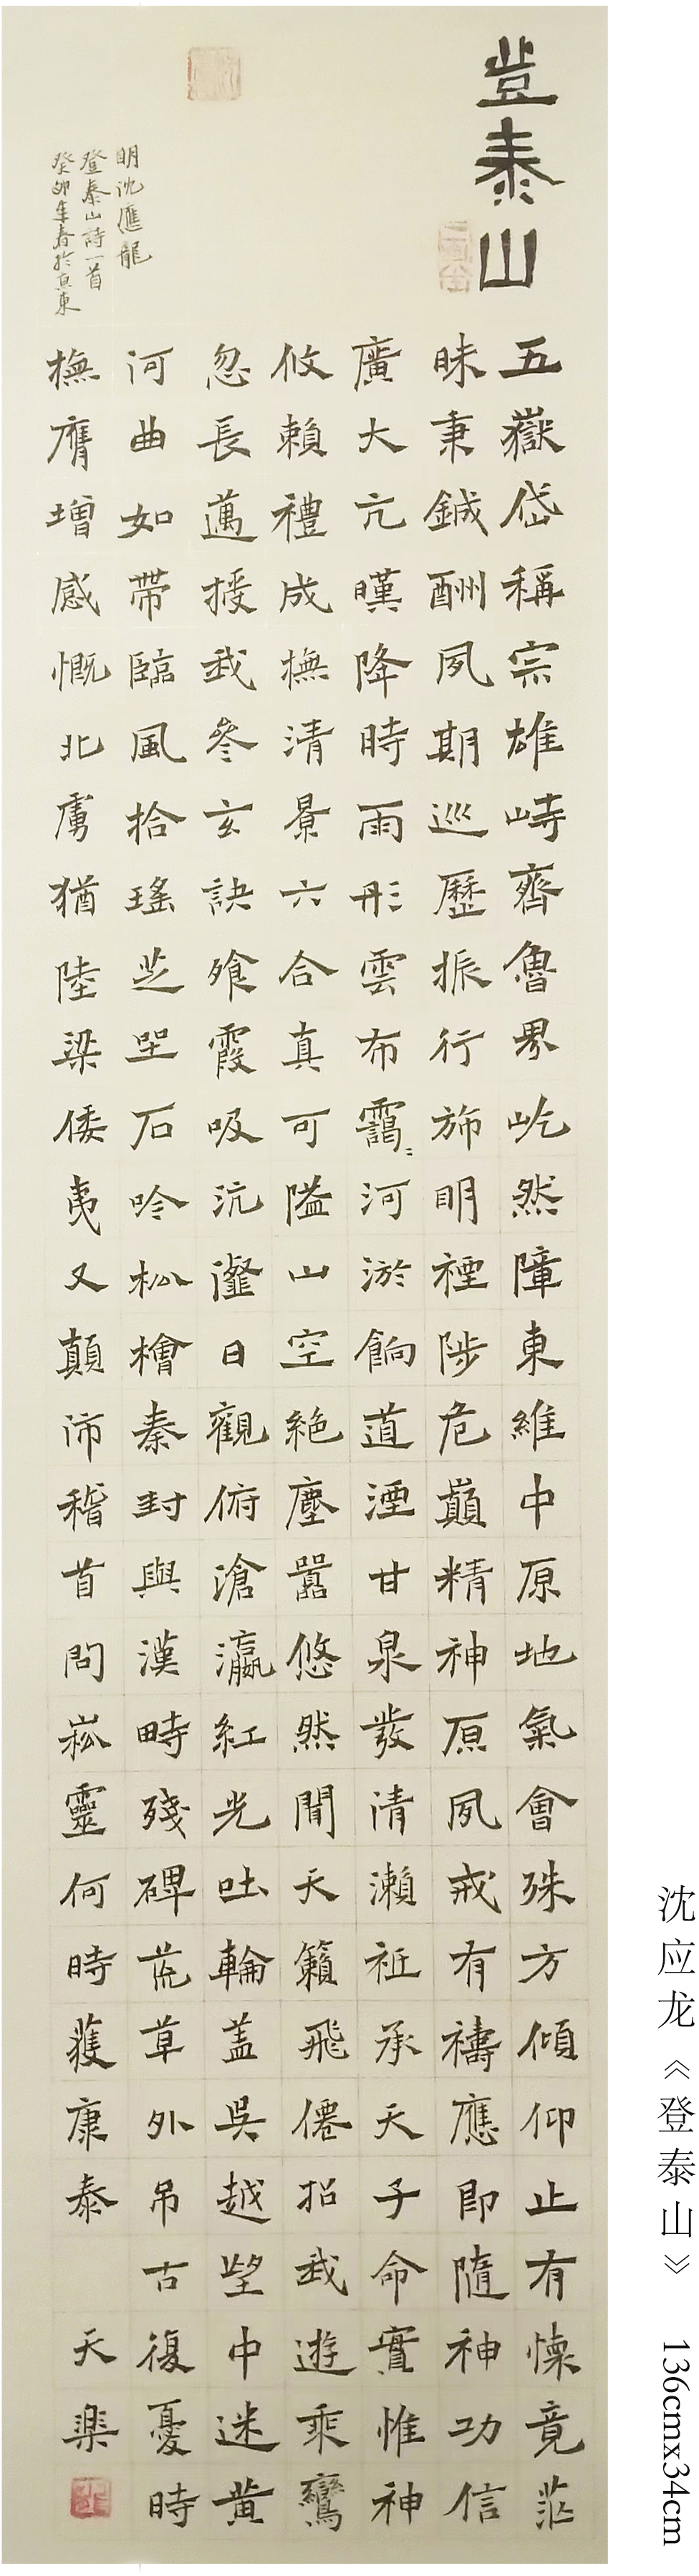 登泰山
五嶽岱稱宗雄峙齊魯界屹然障東維中原地氣會殊方傾仰止有懷竟茫
昧秉鍼酬夙期巡歷振行旆明禋陟危巔精神原夙戒有禱應即隨神功信
廣大亢暵降時雨彤雲布靄〻河淤餉道湮甘泉發清瀨祗承天子命實惟神
攸賴禮成撫清景六合真可隘山空絕塵囂悠然聞天籟飛僊招我遊乘鸞
忽長邁授我參玄訣飧霞吸沆瀣日觀俯滄瀛紅光吐輪蓋吳越望中迷黃
河曲如帶臨風拾瑤芝坐石吟松檜秦封與漢畤殘碑荒草外吊古復憂時
撫膺增感慨北虜猶陸梁倭夷又顛沛稽首問崧靈何時獲康泰 天樂
明沈應龍
登泰山詩一首
癸卯年春於京東
沈应龙《登泰山》 136cmx34cm